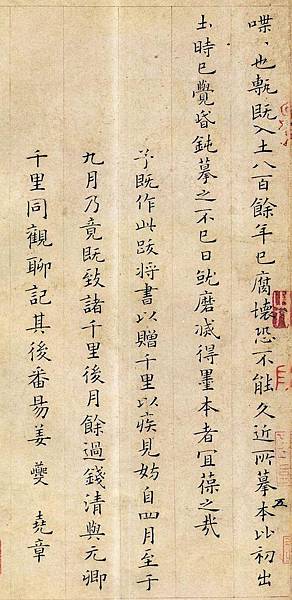 喋、也甎既入土八百餘年已腐壞恐不能久近所摹本比初出
土時已覺昏鈍摹之不已日就磨滅得墨本者宜葆之哉
予既作此跋將書以贈千里以疾見妨自四月至于
九月乃竟既致諸千里後月餘過錢清與元卿
千里同觀聊記其後番昜姜夔 堯章
五